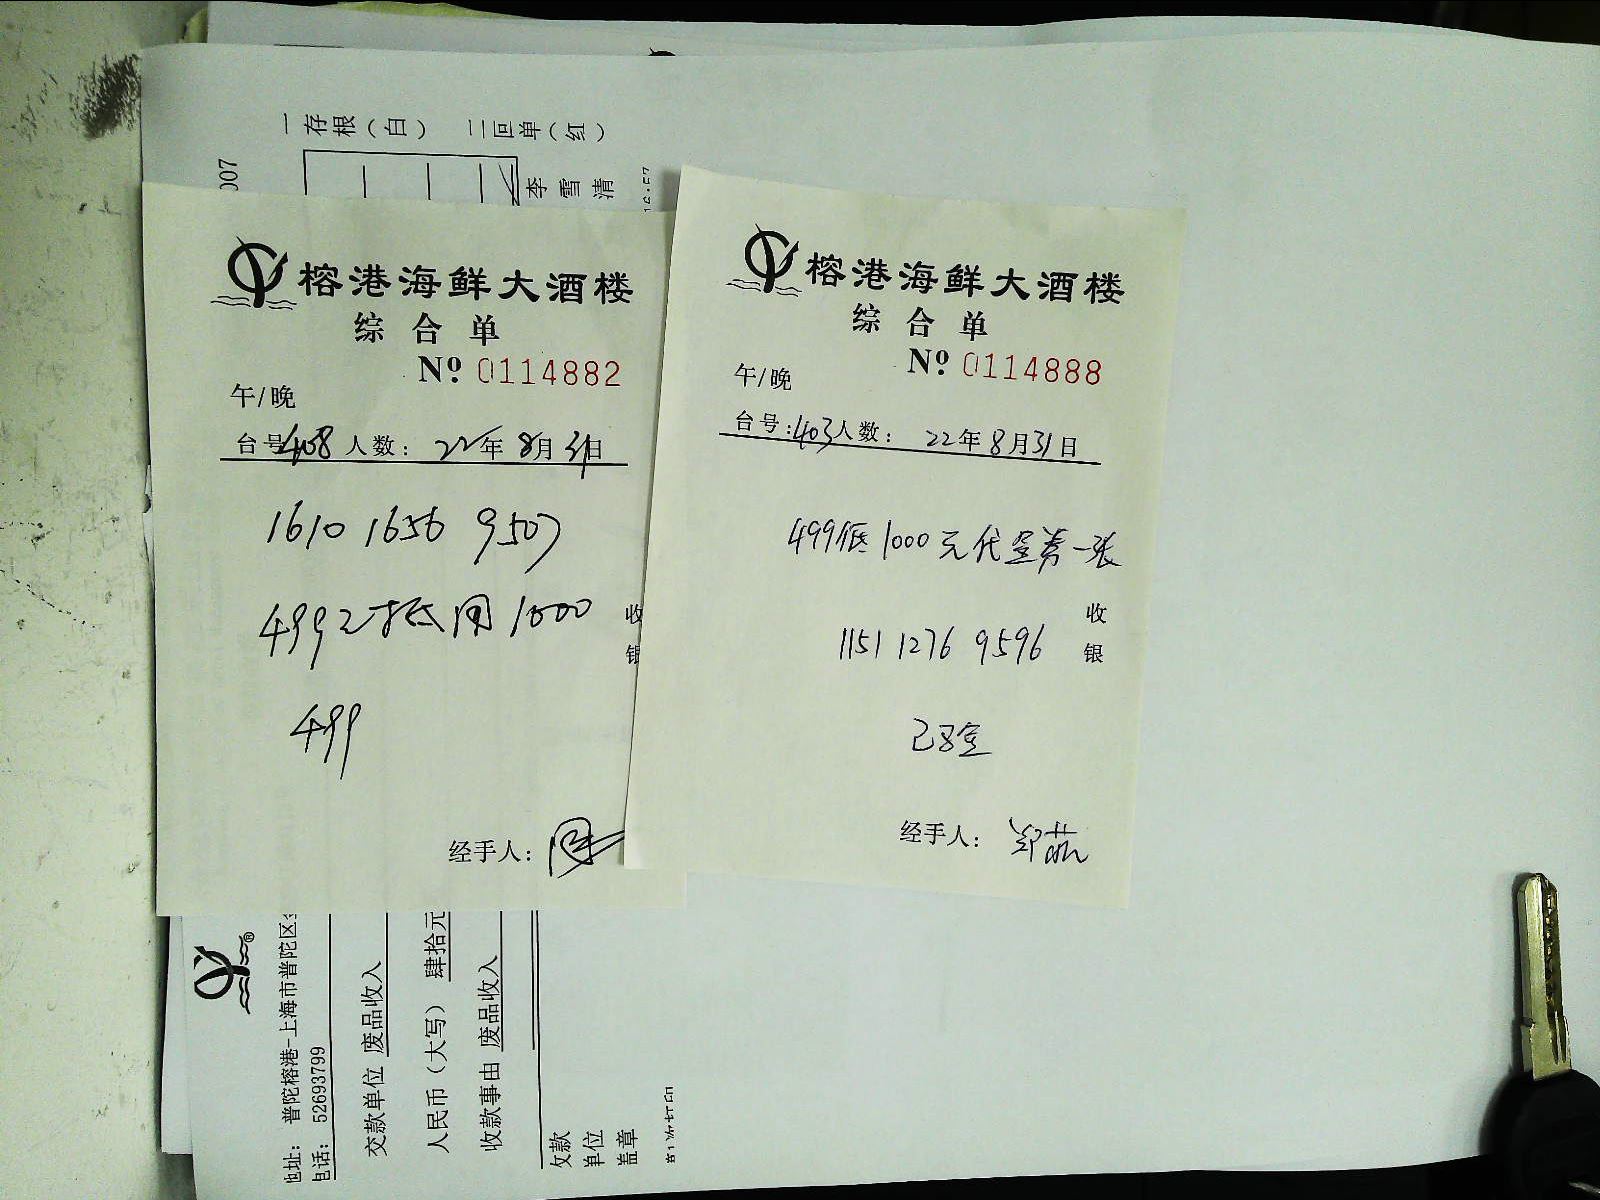 一存根（白） 二回单（红）
007
李雪清
榕港海鲜大酒楼
综合单
Nº 0114882
午/晚
台号 408 人数： 22年 8月 31日
1610 1656 9507
499元抵用1000
收银
499
经手人：
榕港海鲜大酒楼
综合单
Nº 0114888
午/晚
台号：403 人数： 22年 8月 31日
499低1000元代金券一张
1151 1276 9596
收银
已验
经手人：
地址： 普陀榕港-上海市普陀区
电话： 52693799
交款单位 废品收入
人民币（大写） 肆拾元
收款事由 废品收入
收款
单位
盖章